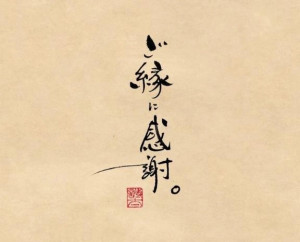 ご縁に感謝。